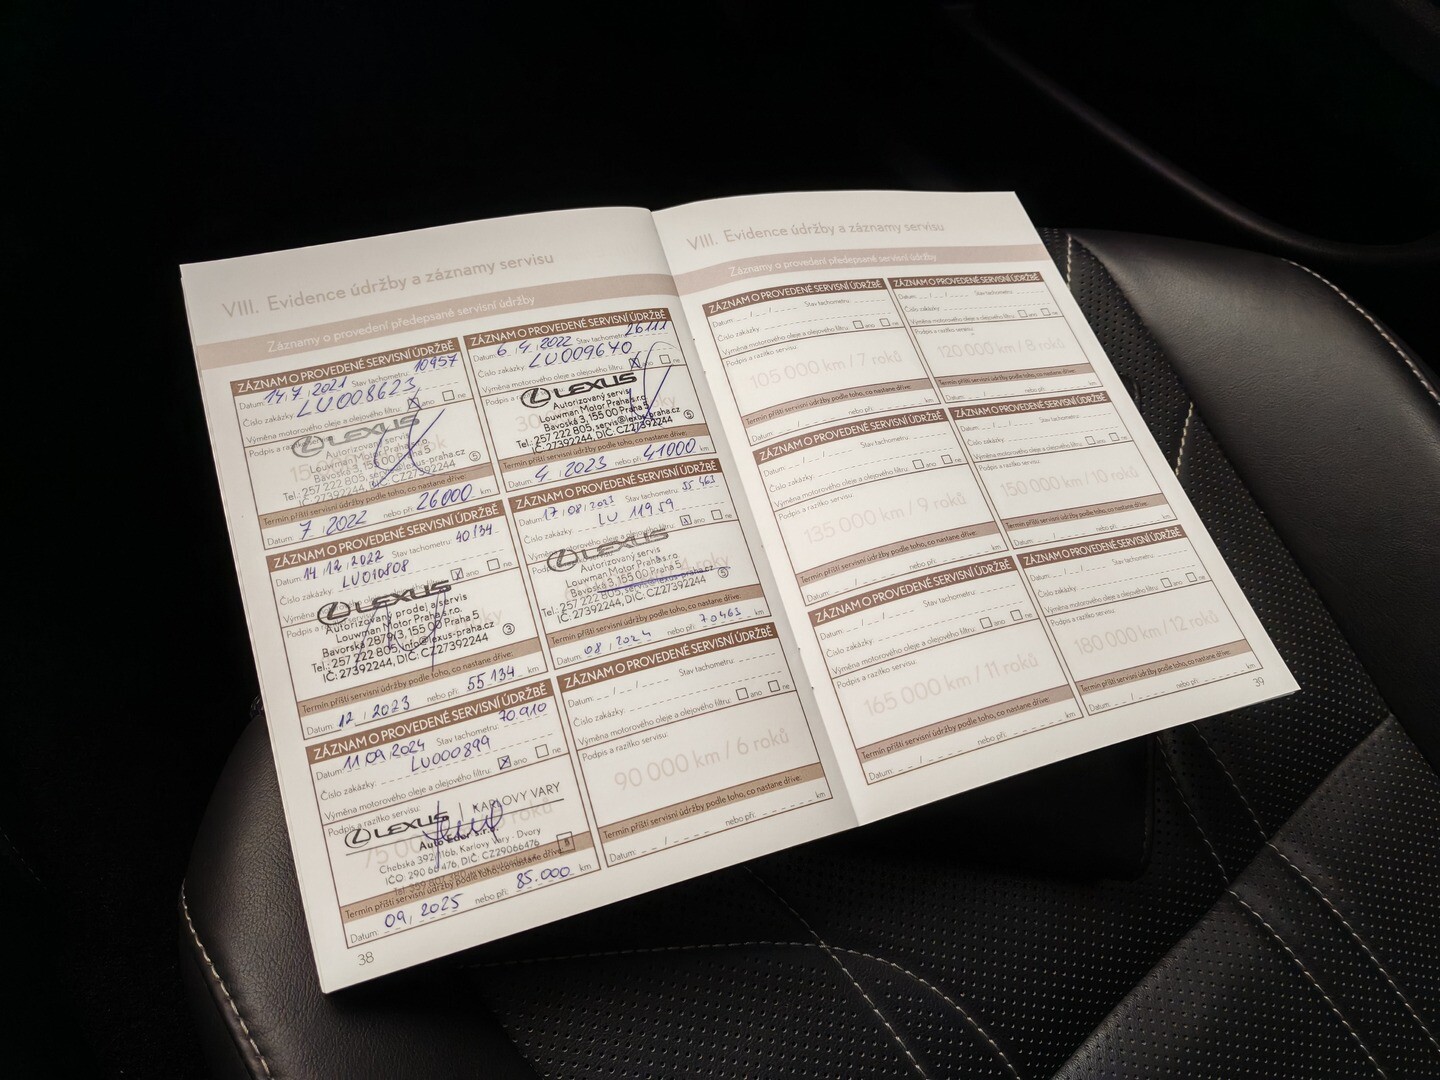 VIII. Evidence údržby a záznamy servisu
Záznamy o provedení předepsané servisní údržby
ZÁZNAM O PROVEDENÉ SERVISNÍ ÚDRŽBĚ
Datum: 14.7.2021 Stav tachometru: 10957
Číslo zakázky: LU008623
Výměna motorového oleje a olejového filtru: ano ne
Podpis a razítko servisu:
LEXUS
Autorizovaný servis
Louwman Motor Praha s.r.o.
Bavorská 3, 155 00 Praha 5
Tel.: 257 222 805, servis@lexus-praha.cz 5
IČ: 27392244, DIČ: CZ27392244
Termín příští servisní údržby podle toho, co nastane dříve:
Datum: 7 2022 nebo při: 26000 km
ZÁZNAM O PROVEDENÉ SERVISNÍ ÚDRŽBĚ
Datum: 6.4.2022 Stav tachometru: 26111
Číslo zakázky: LU009640
Výměna motorového oleje a olejového filtru: ano ne
LEXUS
Autorizovaný servis
Louwman Motor Praha s.r.o.
Bavorská 3, 155 00 Praha 5
Tel.: 257 222 805, servis@lexus-praha.cz 5
IČ: 27392244, DIČ: CZ27392244
Termín příští servisní údržby podle toho, co nastane dříve:
Datum: 4 2023 nebo při: 41000 km
ZÁZNAM O PROVEDENÉ SERVISNÍ ÚDRŽBĚ
Datum: 14.12.2022 Stav tachometru: 40134
Číslo zakázky: LU010808
Výměna motorového oleje a olejového filtru: ano ne
Podpis a razítko servisu:
LEXUS
Autorizovaný prodej a servis
Louwman Motor Praha s.r.o.
Bavorská 2879/3, 155 00 Praha 5
Tel.: 257 222 805, info@lexus-praha.cz 3
IČ: 27392244, DIČ: CZ27392244
Termín příští servisní údržby podle toho, co nastane dříve:
Datum: 12 2023 nebo při: 55134 km
ZÁZNAM O PROVEDENÉ SERVISNÍ ÚDRŽBĚ
Datum: 17.08.2023 Stav tachometru: 55 463
Číslo zakázky: LU 11959
Výměna motorového oleje a olejového filtru: ano ne
LEXUS
Autorizovaný servis
Louwman Motor Praha s.r.o.
Bavorská 3, 155 00 Praha 5
Tel.: 257 222 805, servis@lexus-praha.cz 5
IČ: 27392244, DIČ: CZ27392244
Termín příští servisní údržby podle toho, co nastane dříve:
Datum: 08 2024 nebo při: 70463 km
ZÁZNAM O PROVEDENÉ SERVISNÍ ÚDRŽBĚ
Datum: 11.09.2024 Stav tachometru: 70.910
Číslo zakázky: LU000899
Výměna motorového oleje a olejového filtru: ano ne
Podpis a razítko servisu:
LEXUS KARLOVY VARY
Auto Eder s.r.o.
Chebská 392/116b, Karlovy Vary - Dvory
IČO: 290 66 476, DIČ: CZ29066476
Termín příští servisní údržby podle toho, co nastane dříve:
Datum: 09 2025 nebo při: 85.000 km
ZÁZNAM O PROVEDENÉ SERVISNÍ ÚDRŽBĚ
Datum: Stav tachometru:
Číslo zakázky:
Výměna motorového oleje a olejového filtru: ano ne
Podpis a razítko servisu:
90 000 km / 6 roků
Termín příští servisní údržby podle toho, co nastane dříve:
Datum: nebo při: km
38
VIII. Evidence údržby a záznamy servisu
Záznamy o provedení předepsané servisní údržby
ZÁZNAM O PROVEDENÉ SERVISNÍ ÚDRŽBĚ
Datum: Stav tachometru:
Číslo zakázky:
Výměna motorového oleje a olejového filtru: ano ne
Podpis a razítko servisu:
105 000 km / 7 roků
Termín příští servisní údržby podle toho, co nastane dříve:
Datum: nebo při: km
ZÁZNAM O PROVEDENÉ SERVISNÍ ÚDRŽBĚ
Datum: Stav tachometru:
Číslo zakázky:
Výměna motorového oleje a olejového filtru: ano ne
Podpis a razítko servisu:
120 000 km / 8 roků
Termín příští servisní údržby podle toho, co nastane dříve:
Datum: nebo při: km
ZÁZNAM O PROVEDENÉ SERVISNÍ ÚDRŽBĚ
Datum: Stav tachometru:
Číslo zakázky:
Výměna motorového oleje a olejového filtru: ano ne
Podpis a razítko servisu:
135 000 km / 9 roků
Termín příští servisní údržby podle toho, co nastane dříve:
Datum: nebo při: km
ZÁZNAM O PROVEDENÉ SERVISNÍ ÚDRŽBĚ
Datum: Stav tachometru:
Číslo zakázky:
Výměna motorového oleje a olejového filtru: ano ne
Podpis a razítko servisu:
150 000 km / 10 roků
Termín příští servisní údržby podle toho, co nastane dříve:
Datum: nebo při: km
ZÁZNAM O PROVEDENÉ SERVISNÍ ÚDRŽBĚ
Datum: Stav tachometru:
Číslo zakázky:
Výměna motorového oleje a olejového filtru: ano ne
Podpis a razítko servisu:
165 000 km / 11 roků
Termín příští servisní údržby podle toho, co nastane dříve:
Datum: nebo při: km
ZÁZNAM O PROVEDENÉ SERVISNÍ ÚDRŽBĚ
Datum: Stav tachometru:
Číslo zakázky:
Výměna motorového oleje a olejového filtru: ano ne
Podpis a razítko servisu:
180 000 km / 12 roků
Termín příští servisní údržby podle toho, co nastane dříve:
Datum: nebo při: km
39